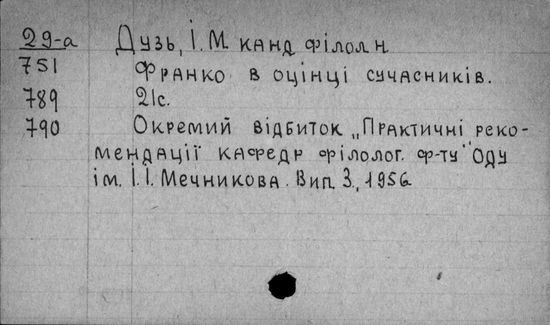 29-а Дузь, І. М. канд філол н
751 Франко в оцінці сучасників.
789 21с.
790 Окремий відбиток „Практичні реко-
мендації кафедр філолог. ф-ту" ОДУ
ім. І. І. Мечникова. Вип. 3., 1956